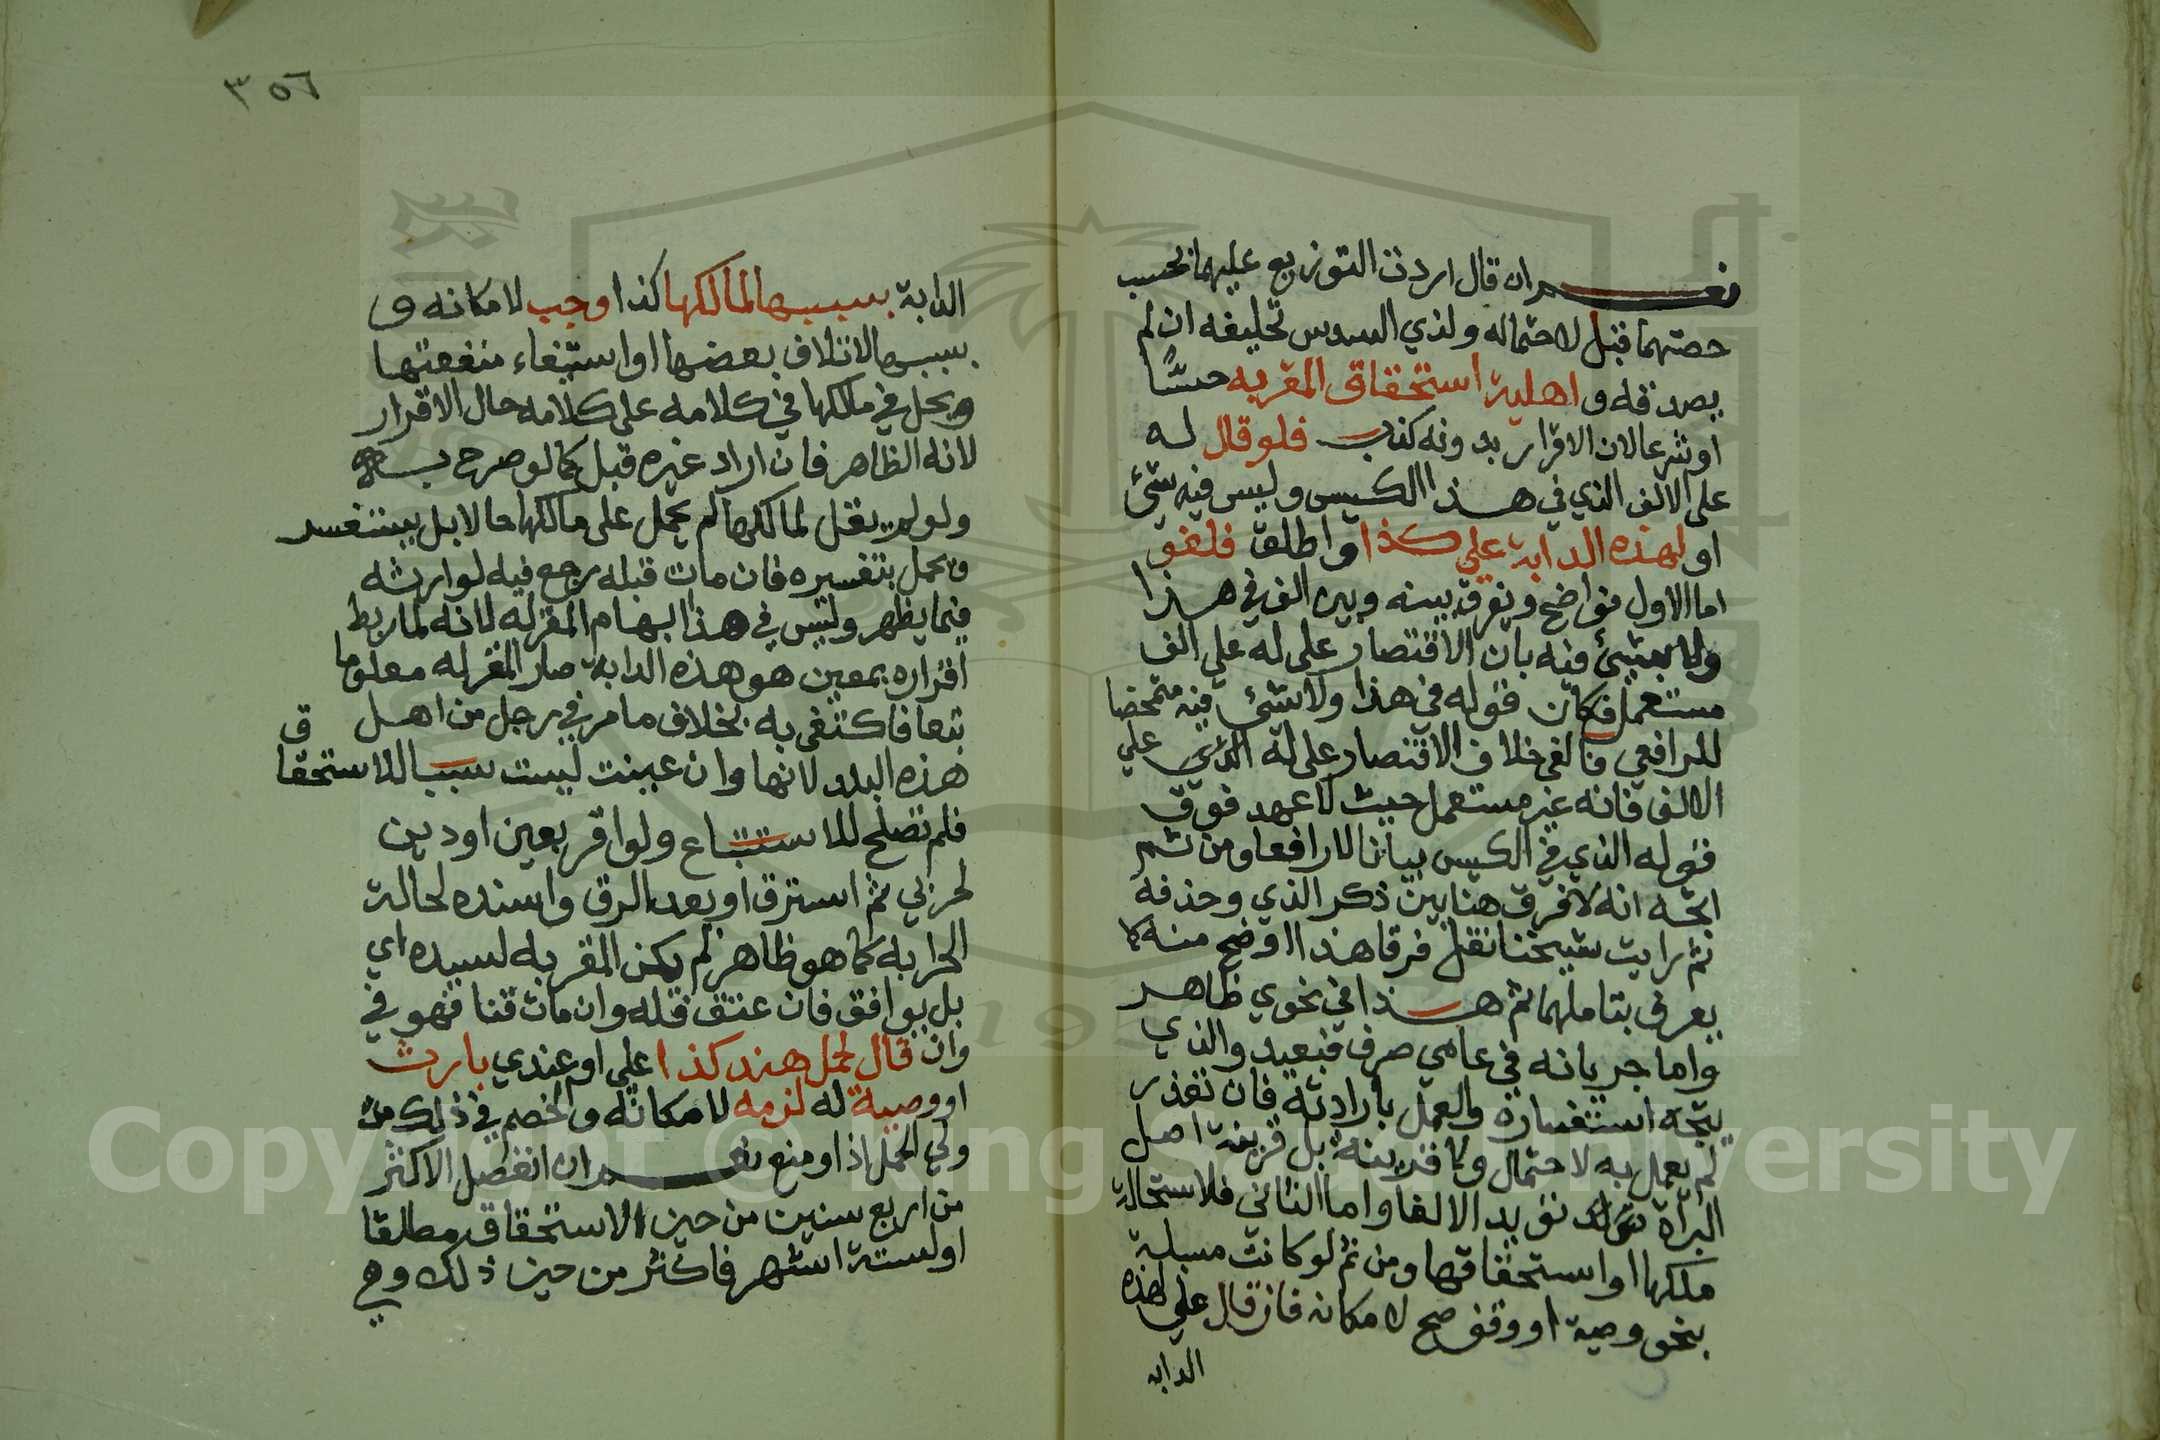 نعم ان قال اردت التوزيع عليهما بحسب
حصتهما قبل لاحتماله ولذي السدس تحليفه ان لم
يصدقه و اهلية استحقاق المقر به حسًّا
او شرعا لان الاقرار بدونه كذب فلو قال له
على الالف الذي في هذا الكيس وليس فيه شئ
او لهذه الدابة علي كذا واطلق فلغو
اما الاول فواضح ويفرق بينه وبين الف في هذا
ولا شئ فيه بان الاقتصار على له علي الف
مستعمل فكان قوله في هذا ولا شئ فيه متمحضا
للرافعي فالغي خلاف الاقتصار على له الذي علي
الالف فانه غير مستعمل حيث لا عهد فوق
قوله الذي في الكيس بيانا لا رافعا ومن ثم
اتجه انه لا فرق هنا بين ذكر الذي وحذفه
ثم رايت شيخنا نقل فرقا هذا اوضح منه كما
يعرف بتاملهما ثم هذا في نحوي ظاهر
واما جريانه في عامي صرف فبعيد والذي
يتجه استفساره والعمل بارادته فان تعذر
لم يعمل به لاحتمال ولا قرينة بل قرينة اصل
البراة تويد الالغا واما الثاني فلاستحالة
ملكها او استحقاقها ومن ثم لو كانت مسبلة
بنحو وصية او وقف صح لامكانه فان قال علي لهذه
الدابه
٣٥٦
الدابة بسببها لمالكها كذا وجب لامكانه و
بسببها لاتلاف بعضها او استيفاء منفعتها
ويحمل في مالكها في كلامه على كلامه حال الاقرار
لانه الظاهر فان اراد غيره قبل كما لو صرح به
ولو لم يقل لمالكها لم يحمل على مالكها حالا بل يستفسر
ويحمل بتفسيره فان مات قبله رجع فيه لوارثه
فيما يظهر وليس في هذا ابهام المقر له لانه لما ربط
اقراره بمعين هو هذه الدابة صار المقر له معلوما
تبعا فاكتفى به بخلاف ما مر في رجل من اهل
هذه البلد لانها وان عينت ليست سببا للاستحقاق
فلم تصلح للاستتباع ولو اقر بعين او دين
لحربي ثم استرق او بعد الرق واسنده لحالة
الحرابه كما هو ظاهر لم يكن المقر به لسيده اي
بل يوافق فان عتق فله وان مات قنا فهو في
وان قال لحمل هند كذا علي او عندي بارث
او وصية له لزمه لامكانه والخصم في ذلك من
ولي الحمل اذا وضع نعم ان انفصل الاكثر
من اربع سنين من حين الاستحقاق مطلقا
او لستة اشهر فاكثر من حين ذلك وهي
Copyright © King Saud University